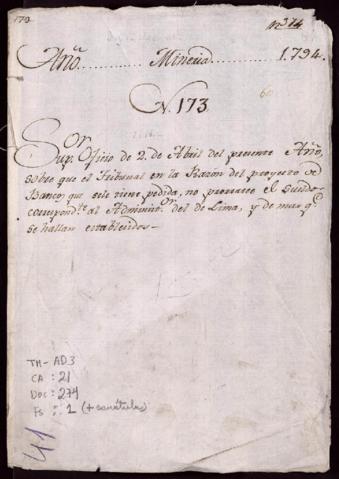 173
Nº 14
Año Mineria 1.794.
N. 173
60
Sor
Sup. Oficio de 2. de Abril del presente Año,
sobre que el Tribunal en la Razon del proyecto de
Banco, que este tiene pedida, no el Sueldo
correspondte. al Adminor. del de Lima, y de mas qe.
se hallan establecidos-
TM-AD3
CA : 21
Doc : 274
Fs : 1 (+ carátula)
41